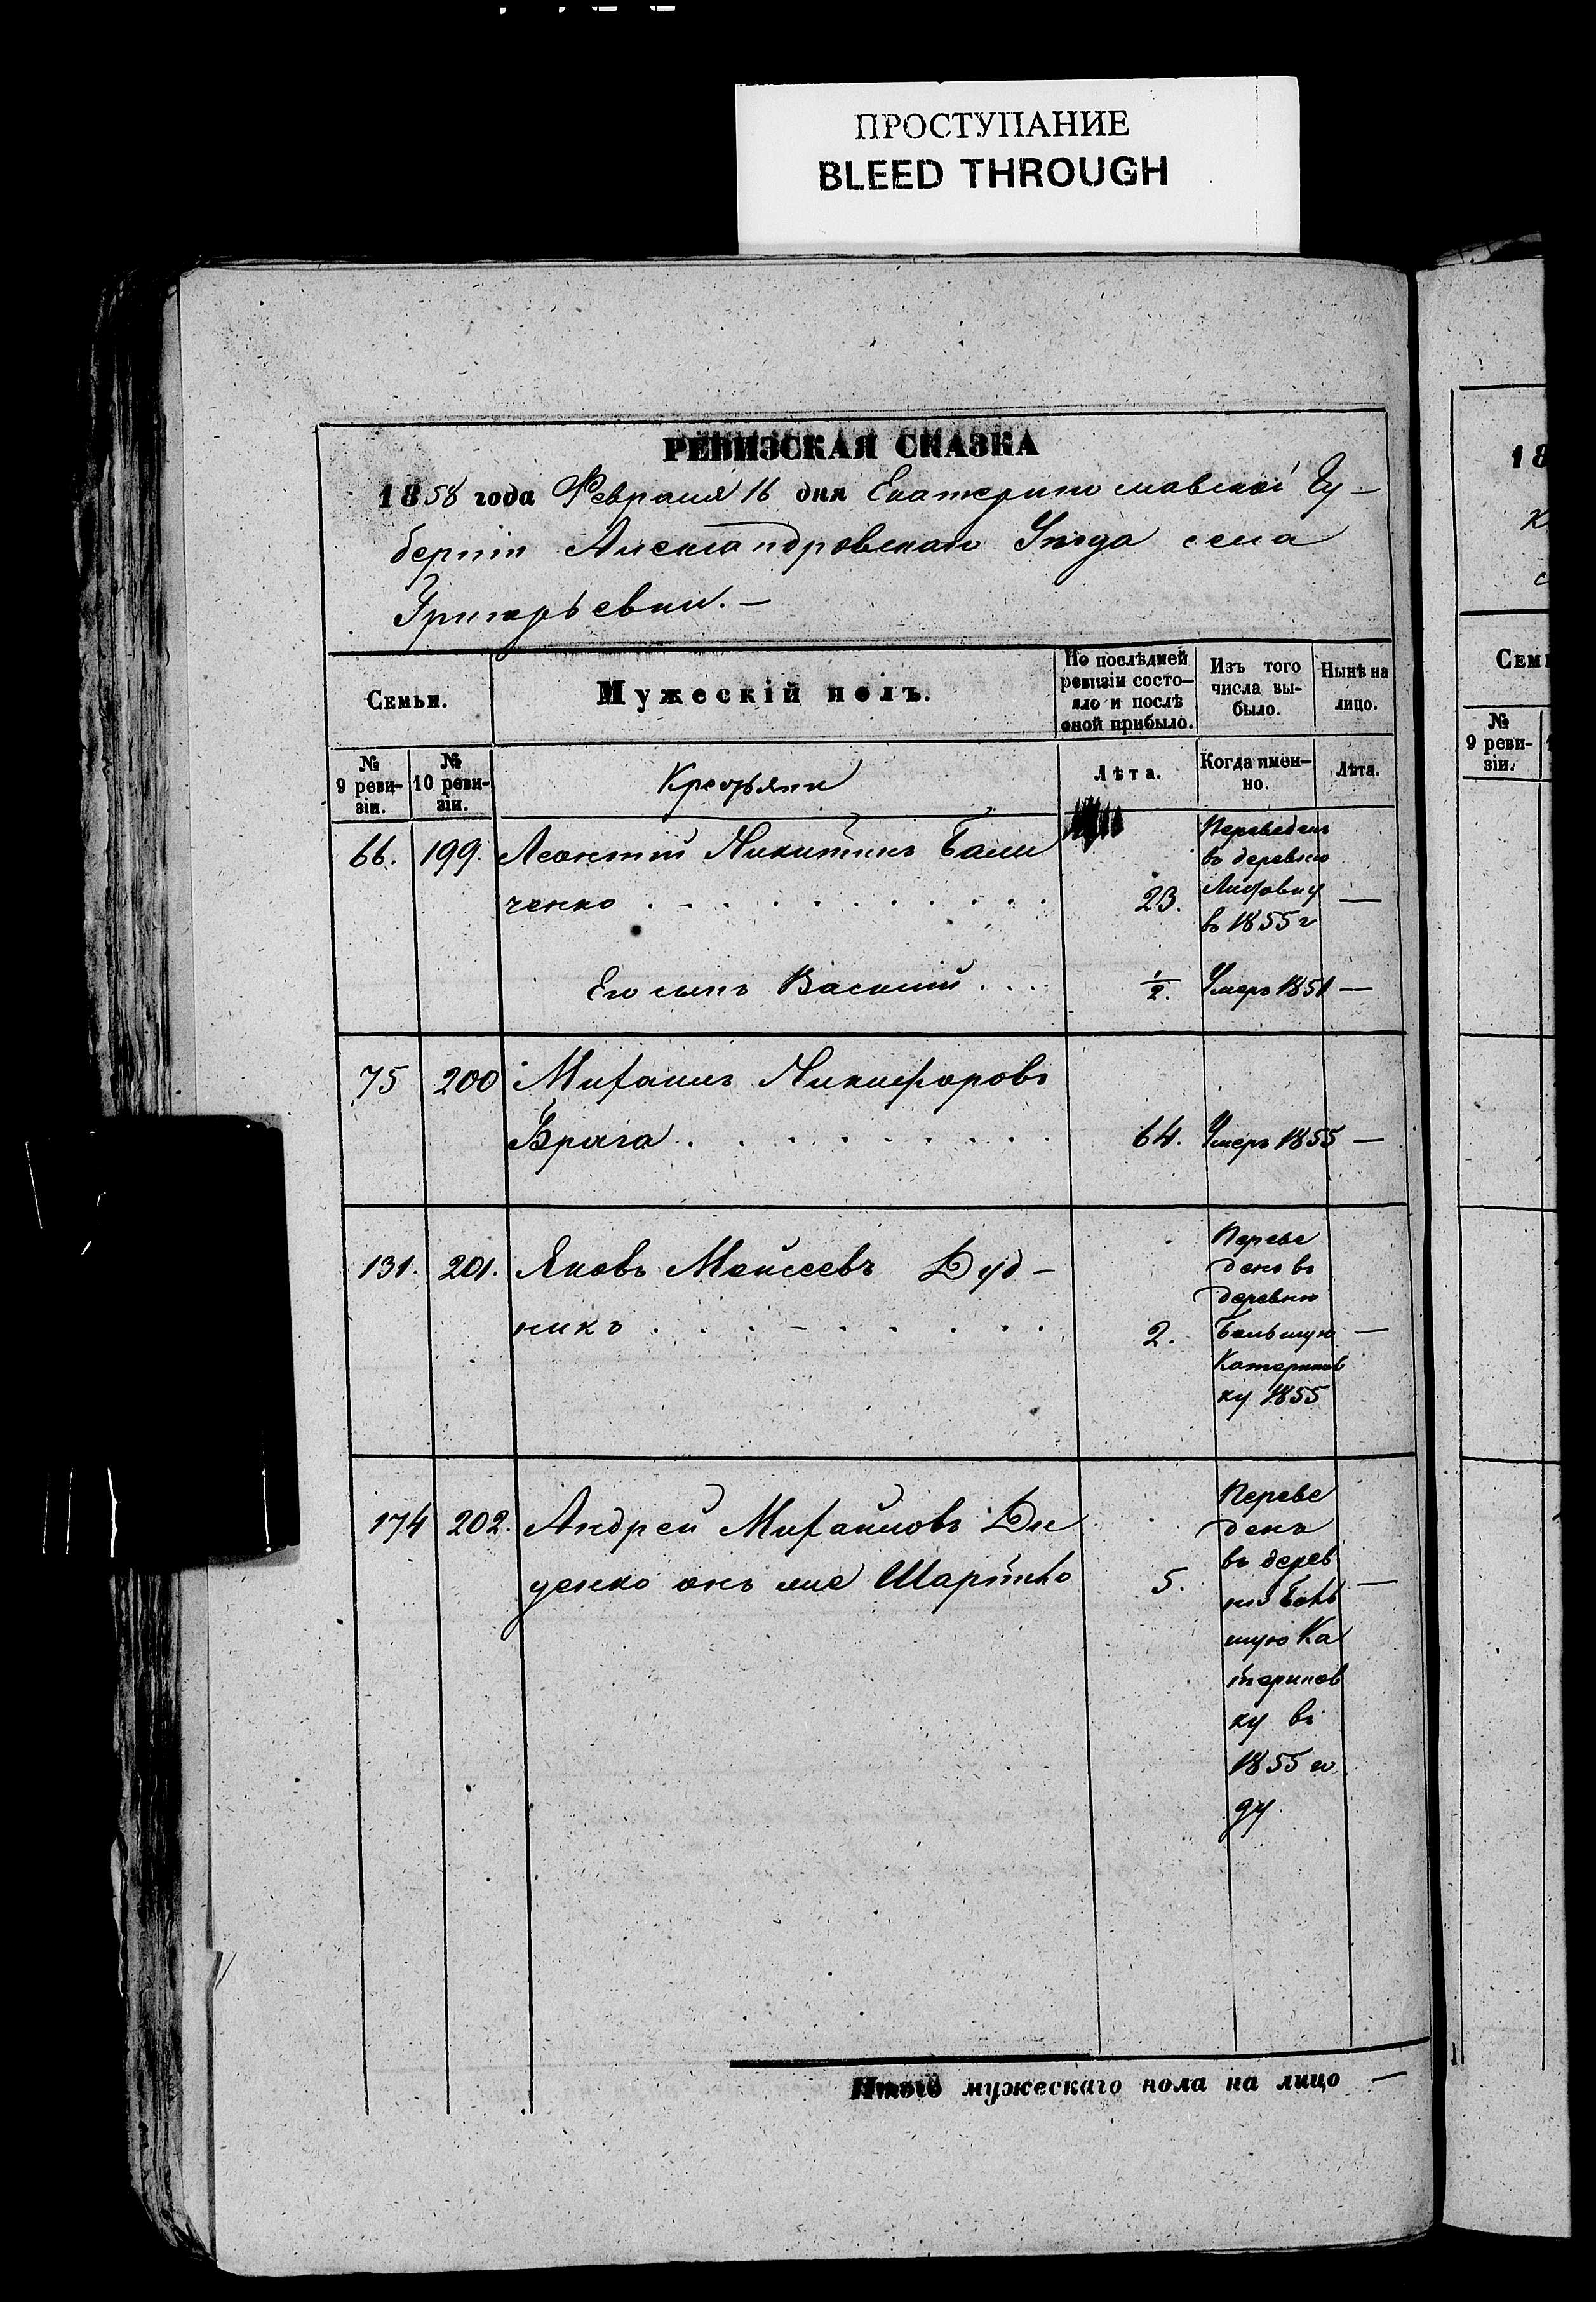 ПРОСТУПАНИЕ
BLEED THROUGH
РЕВИЗСКАЯ СКАЗКА
1858 года Февраля 16 дня Екатеринославской Гу-
берніи Александровскаго Уѣзда села
Григорьевки.—
Семьи.
Мужескій полъ.
По послѣдней
ревизіи состо-
яло и послѣ
оной прибыло.
Изъ того
числа вы-
было.
Нынѣ на
лицо.
№
9 реви-
зіи.
№
10 реви-
зіи.
Крестьяне
Лѣта.
Когда имен-
но.
Лѣта.
66. 199. Леонтій Никитинъ Бали
ченко . . . . . . . . . . 23. —
Переведенъ
въ деревню
в 1855 г
Его сынъ Василій . . . 1/2. Умеръ 1851 —
75 200 Михаилъ Никифоровъ
Врага . . . . . . . . . 64. Умеръ 1855 —
131. 201. Яковъ Моисеевъ Дуд-
никъ . . . . . . . . . 2. —
Переве
денъ въ
деревню
Большую
Катеринов
ку 1855
174 202. Андрей Михайловъ Ди
денко онъ же 5. —
Переве
денъ
въ дерев
ню Боль
шую Ка
теринов
ку въ
1855 го
ду.
Итого мужескаго пола на лицо —
18
Семь
№
9 реви-
зіи.